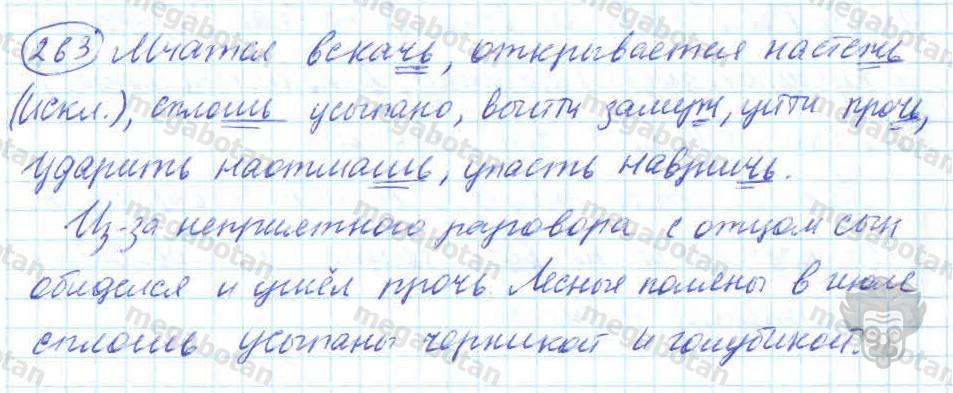 263 Мчатся вскачь, открывается настежь
(искл.), сплошь усыпано, выйти замуж, уйти прочь,
ударить наотмашь, упасть навзничь.
Из-за неприятного разговора с отцом сын
обиделся и ушёл прочь. Лесные поляны в июле
сплошь усыпаны черникой и голубикой.
megabotan